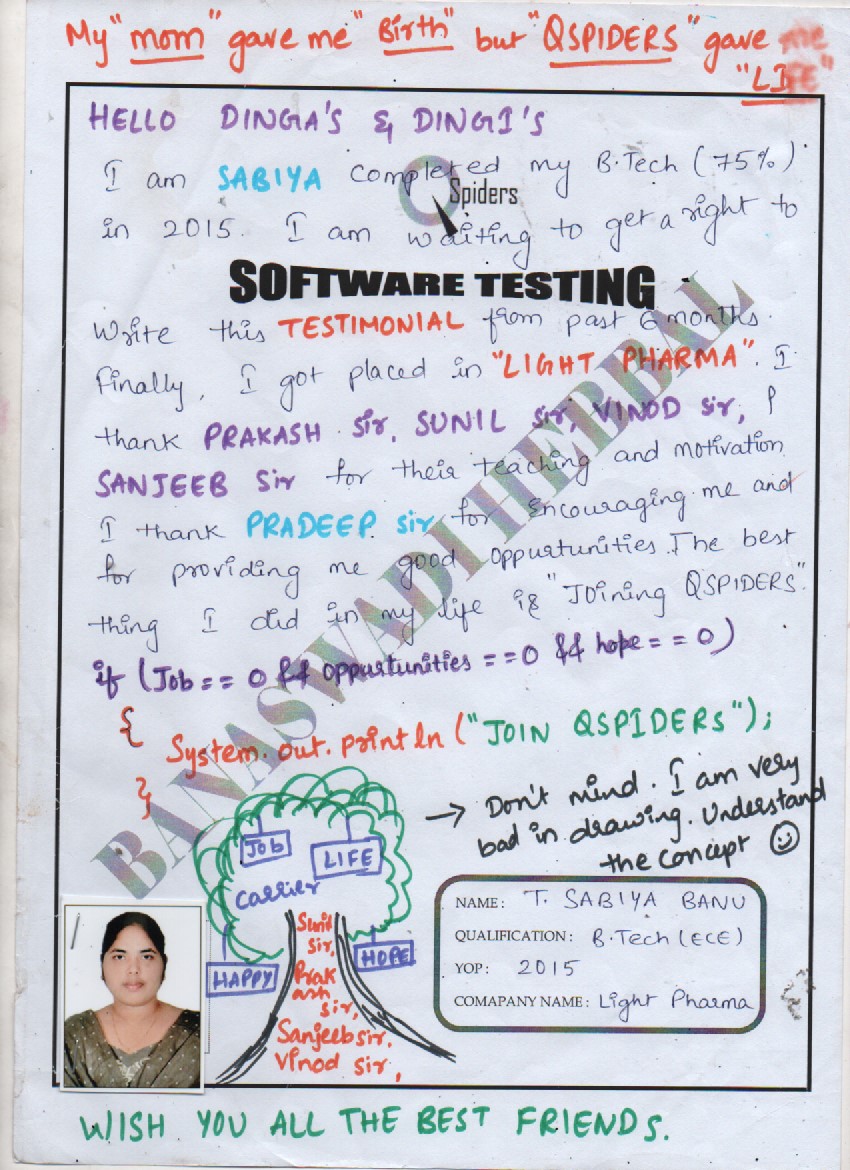 My "mom" gave me "Birth" but "QSPIDERS" gave me
"LIFE"
HELLO DINGA'S & DINGI'S
I am SABIYA completed my B.Tech (75%)
Spiders
in 2015. I am waiting to get a right to
SOFTWARE TESTING
Write this TESTIMONIAL from past 6 months.
Finally, I got placed in "LIGHT PHARMA". I
thank PRAKASH sir, SUNIL sir, VINOD sir,
SANJEEB sir for their teaching and motivation
I thank PRADEEP sir for encouraging me and
for providing me good oppurtunities. The best
thing I did in my life is "JOining QSPIDERS".
BANASWADI HERBAL
if (Job == 0 && oppurtunities == 0 && hope == 0)
{
System.out.println("JOIN QSPIDERS");
}
→ Don't mind. I am very
bad in drawing. Understand
the concept ☺
JOB
LIFE
Carrier
HAPPY
HOPE
Sunil
sir,
Prak
ash
sir,
Sanjeeb sir.
Vinod sir,
NAME: T. SABIYA BANU
QUALIFICATION: B.Tech (ECE)
YOP: 2015
COMAPANY NAME: Light Pharma
WISH YOU ALL THE BEST FRIENDS.